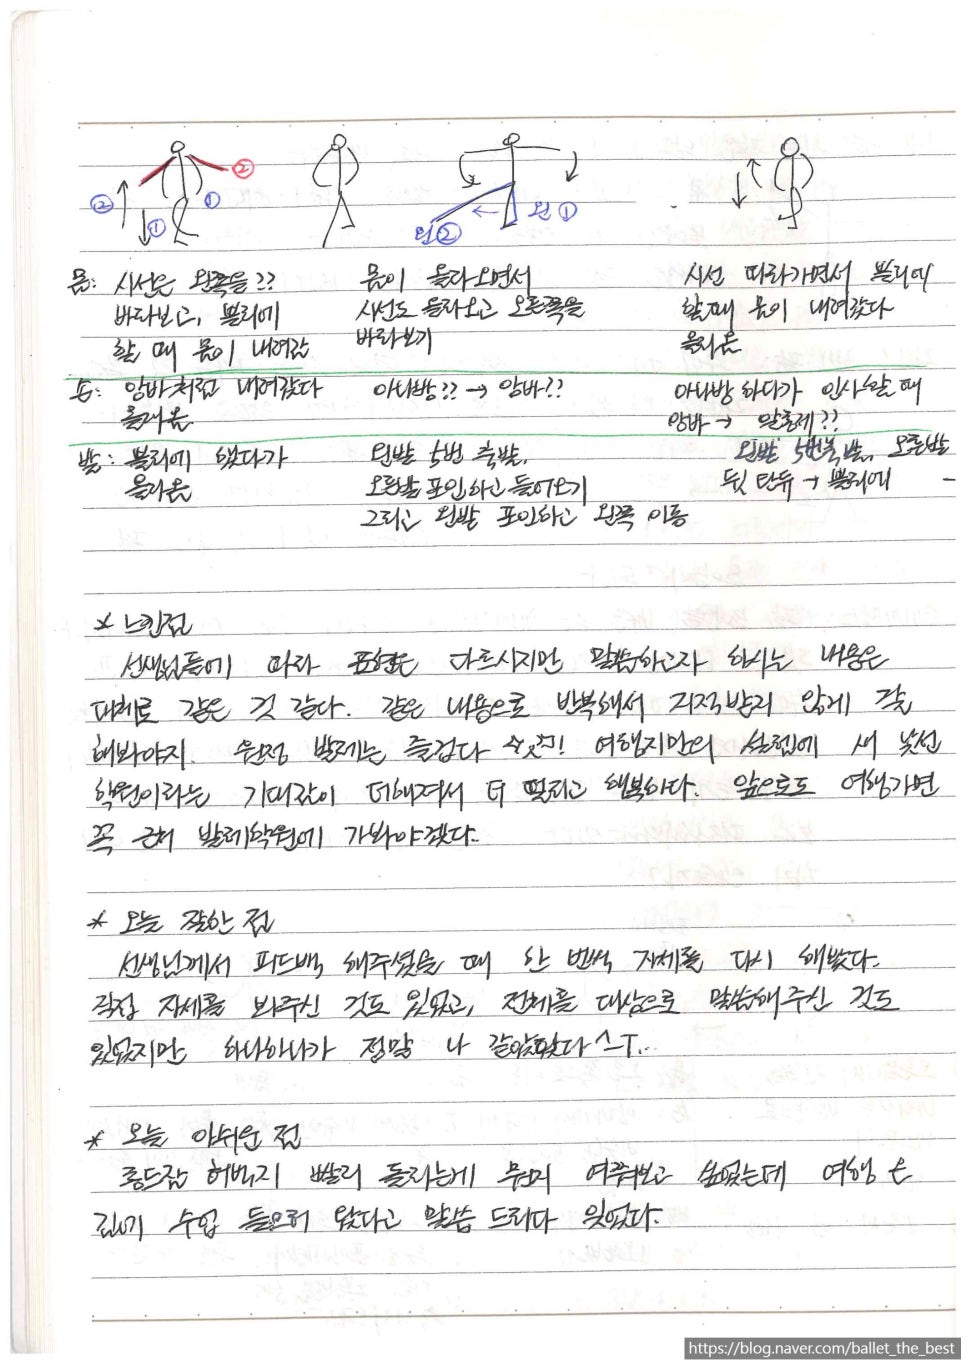 ② ① ① ②
왼② ← 왼①
몸: 시선은 왼쪽을??
바라보고, 쁠리에
할 때 몸이 내려감
몸이 올라오면서
시선도 올라오고 오른쪽을
바라보기
시선 따라가면서 쁠리에
할때 몸이 내려갔다
올라옴
손: 앙바처럼 내려갔다
올라옴
아나방?? → 앙바??
아나방 하다가 인사할 때
앙바 → 알롱제??
발: 쁠리에 했다가
올라옴
왼발 5번 축발,
오른발 포인하고 들어오기
그리고 왼발 포인하고 왼쪽 이동
왼발 5번축발, 오른발
뒷 탄듀 → 쁠리에
* 느낀점
선생님들에 따라 표현은 다르시지만 말씀하고자 하시는 내용은
대체로 같은 것 같다. 같은 내용으로 반복해서 지적받지 않게 잘
해봐야지. 원정 발레는 즐겁다 여행지만의 설렘에 새 낯선
학원이라는 기대감이 더해져서 더 떨리고 행복하다. 앞으로도 여행가면
꼭 근처 발레학원에 가봐야겠다.
* 오늘 잘한 점
선생님께서 피드백 해주셨을 때 한 번씩 자세를 다시 해봤다.
직접 자세를 봐주신 것도 있었고, 전체를 대상으로 말씀해주신 것도
있었지만 하나하나가 정말 나 같았다 ㅅ_ㅜ...
* 오늘 아쉬운 점
롱드잠 허벅지 빨리 돌리는게 뭔지 여쭤보고 싶었는데 여행 온
김에 수업 들으러 왔다고 말씀 드리다 잊었다.
https://blog.naver.com/ballet_the_best